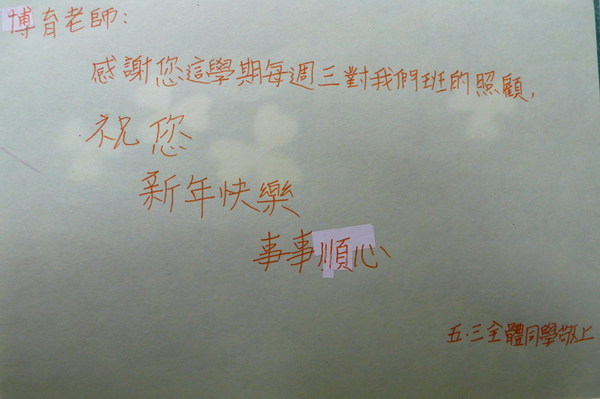 博育老師：
感謝您這學期每週三對我們班的照顧，
祝您
新年快樂
事事順心
五．三全體同學敬上